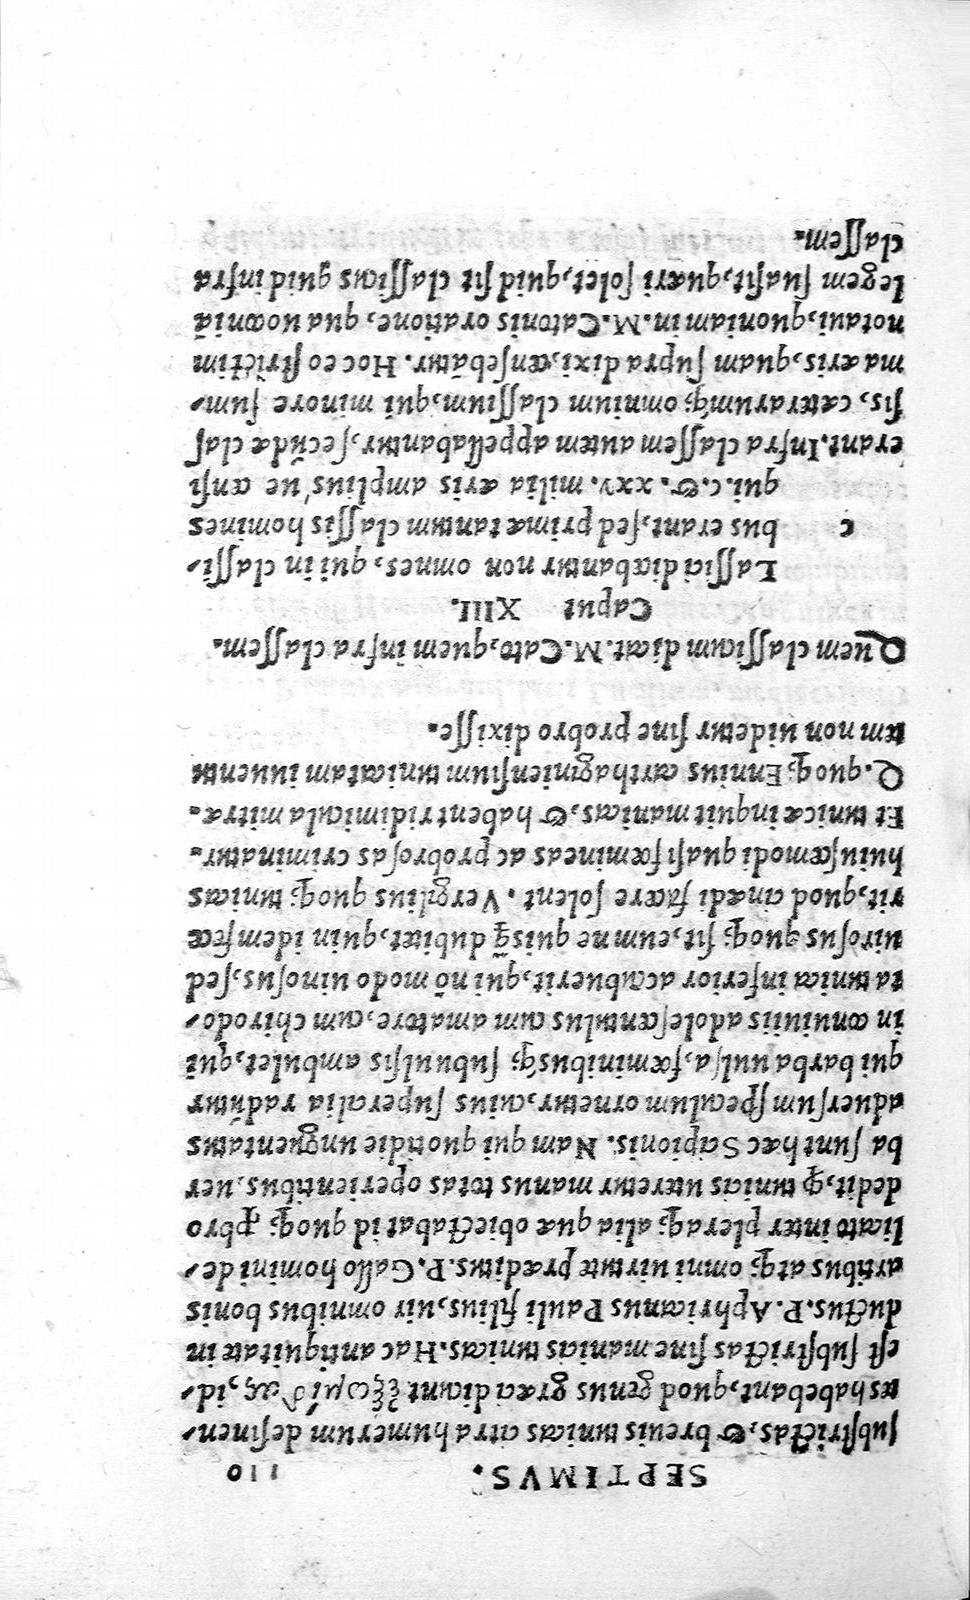 SEPTIMVS. 110
ſubſtrictas, & breuis tunicas citra humerum deſinen-
tes habebant, quod genus græci dicunt ἐξωμίδας, id,
eſt ſubſtrictas ſine manicis tunicas. Hac antiquitate in
ductus. P. Aphricanus Pauli filius, uir omnibus bonis
artibus atq; omni uirtute præditus. P. Gallo homini de-
licato inter pleraq; alia quæ obiectabat id quoq; ꝓbro
dedit, ꝙ tunicis uteretur manus totas operientibus. uer
ba ſunt hæc Scipionis. Nam qui quotidie unguentatus
aduerſum ſpeculum ornetur, cuius ſupercilia radūtur
qui barba uulſa, fœminibusq́; ſubuulſis ambulet, qui
in conuiuiis adoleſcentulus cum amatore, cum chirodo-
ta tunica inferior accubuerit, qui nō modo uinoſus, ſed
uiroſus quoq; ſit, eum ne quisꝗ̃ dubitet, quin idem fece
rit, quod cinædi facere ſolent. Vergilius quoq; tunicas
huiuſcemodi quaſi fœmineas ac probroſas criminatur.
Et tunicæ inquit manicas, & habent ridimicula mitræ.
Q. quoq; Ennius carthaginienſium tunicatam iuuentu
tem non uidetur ſine probro dixiſſe.
Quem claſſicum dicat. M. Cato, quem infra claſſem.
Caput XIII.
Laſſici dicabantur non omnes, qui in claſſi-
c bus erant, ſed primæ tantum claſſis homines
qui. c. &. xxv. milia æris amplius ue cenſi
erant. Infra claſſem autem appellabantur, ſecūdæ claſ
ſis, cæterarumq́; omnium claſſium, qui minore ſum-
ma æris, quam ſupra dixi, cenſebātur. Hoc eo ſtrictim
notaui, quoniam in. M. Catonis oratione, qua uoconiā
legem ſuaſit, quæri ſolet, quid ſit claſſicus quid infra
claſſem.